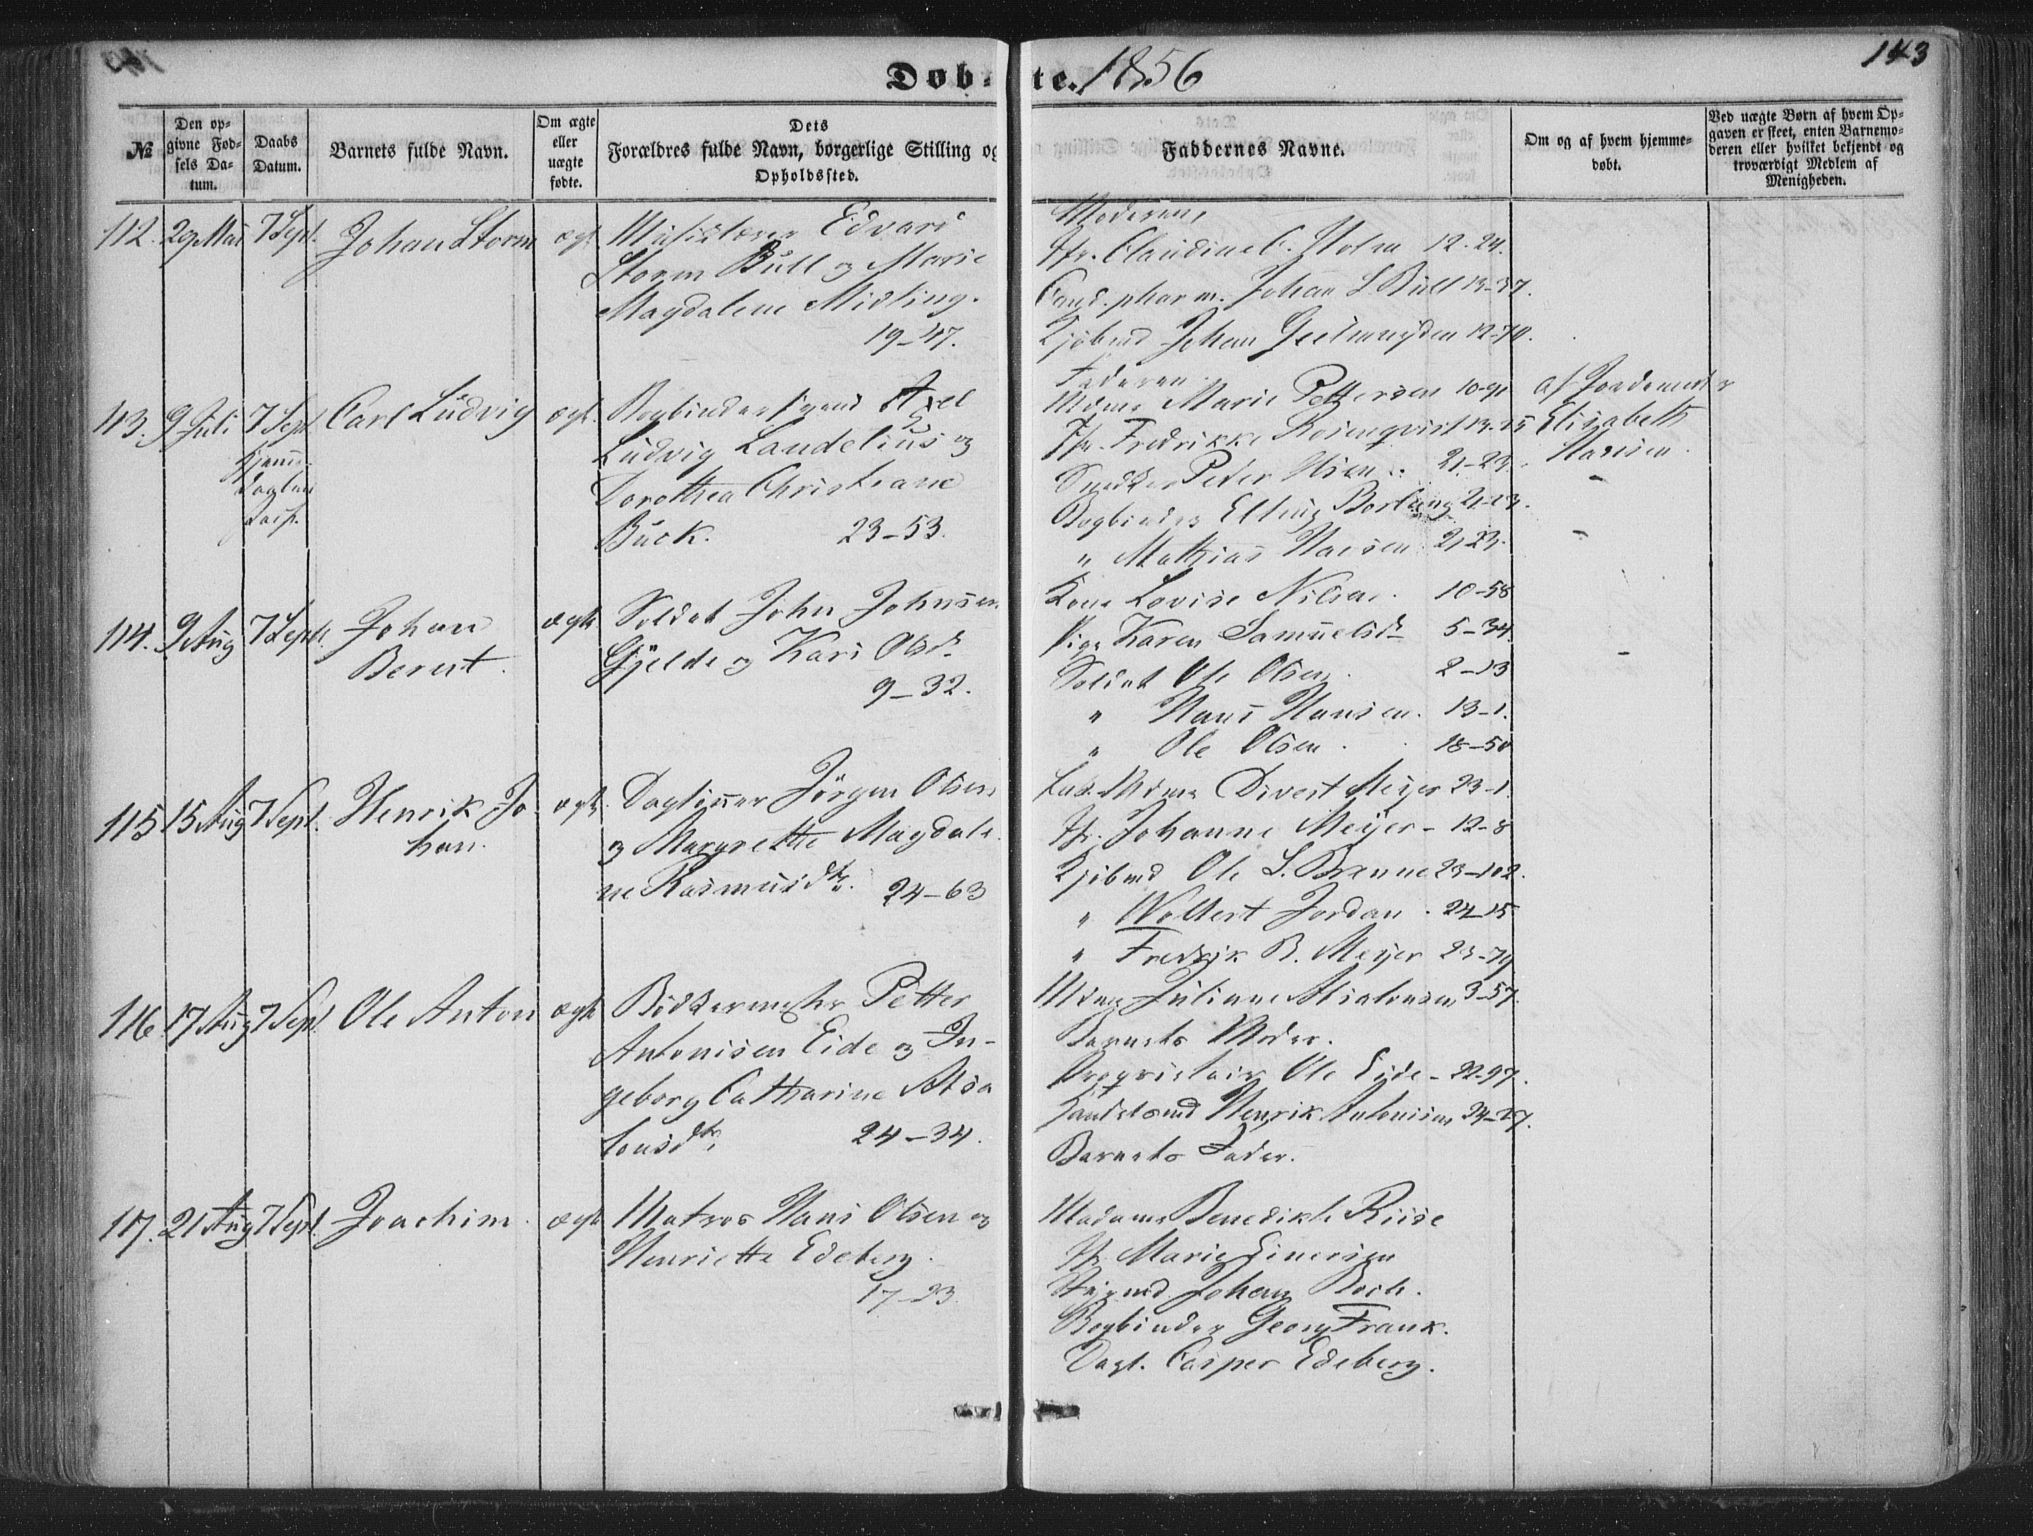 Døb- te. 1856
143
№
Den op-
givne Fød-
sels Da-
tum.
Daabs
Datum.
Barnets fulde Navn.
Om ægte
eller
uægte
fødte.
Dets
Forældres fulde Navn, borgerlige Stilling og
Opholdssted.
Faddernes Navne.
Om og af hvem hjemme-
døbt.
Ved uægte Børn af hvem Op-
gaven er skeet, enten Barnemo-
deren eller hvilket bekjendt og
troværdigt Medlem af
Menigheden.
112. 29 Mai 7 Sept. Johan Storm ægt.
Edvard
Storm Bull og Marie
Magdalene Midling.
19-47.
Moderen,
Jfr. Claudine C. Holm 12-24.
Cand. pharm. Johan S Bull 13-37.
Kjøbmd Johan Geelmuyden 12-70.
Faderen.
113. 9 Juli 7 Sept. Carl Ludvig ægt.
Bogbindersvend Axel
Ludvig Landelius og
Dorothea Christiane
Buck. 23-53.
Mdme Marie Pettersen 10-91
Jfr. Fredrikke Rosenqvist 13-15
Snedker Peder Olsen 21-23.
Bogbinder Elling 21-23.
„ Mathias Hansen 21-23.
af Jordemoder
Elisabeth
Hansen.
114. 9 Aug 7 Sept. Johan
Bernt.
ægte
Soldat John Johnsen
Gjelde og Kari Olsd.
9-32.
Kone Lovise Nilsen. 10-58
Pige Karen Samuelsdr 5-34
Soldat Ole Olsen. 2-13
„ Hans Hansen. 13-1.
„ Ole Olsen. 18-50
115 15 Aug 7 Sept. Henrik Jo-
han.
ægte
Dagleier Jörgen Olsen
og Margrethe Magdale-
ne Rasmusdtr. 24-63
Mdme Divert Meyer 23-1.
Jfr. Johanne Meyer- 12-8
Kjøbmd Ole S. Brunne 23-102.
„ Wollert Jordan. 24-15
„ Fredrik B. Meyer 23-79
116. 17 Aug 7 Sept. Ole Anton ægte
Bödkermester Petter
Antonisen Eide og In-
geborg Catharine Absa
lonsdtr, 24-34.
Mdme Juliane Absalonsen 3-57.
Barnets Moder.
Proprietair Ole Eide- 22-97.
Handelsmd Henrik Antonisen 24-27.
Barnets Fader.
117. 21 Aug 7 Sept. Joachim. ægte
Matros Hans Olsen og
Henriette Edeberg.
17-23
Madame Benedikte Riise
Jfr. Marie Einersen
Johan Bech.
Bogbinder Georg Frank.
Dagl. Casper Edeberg.